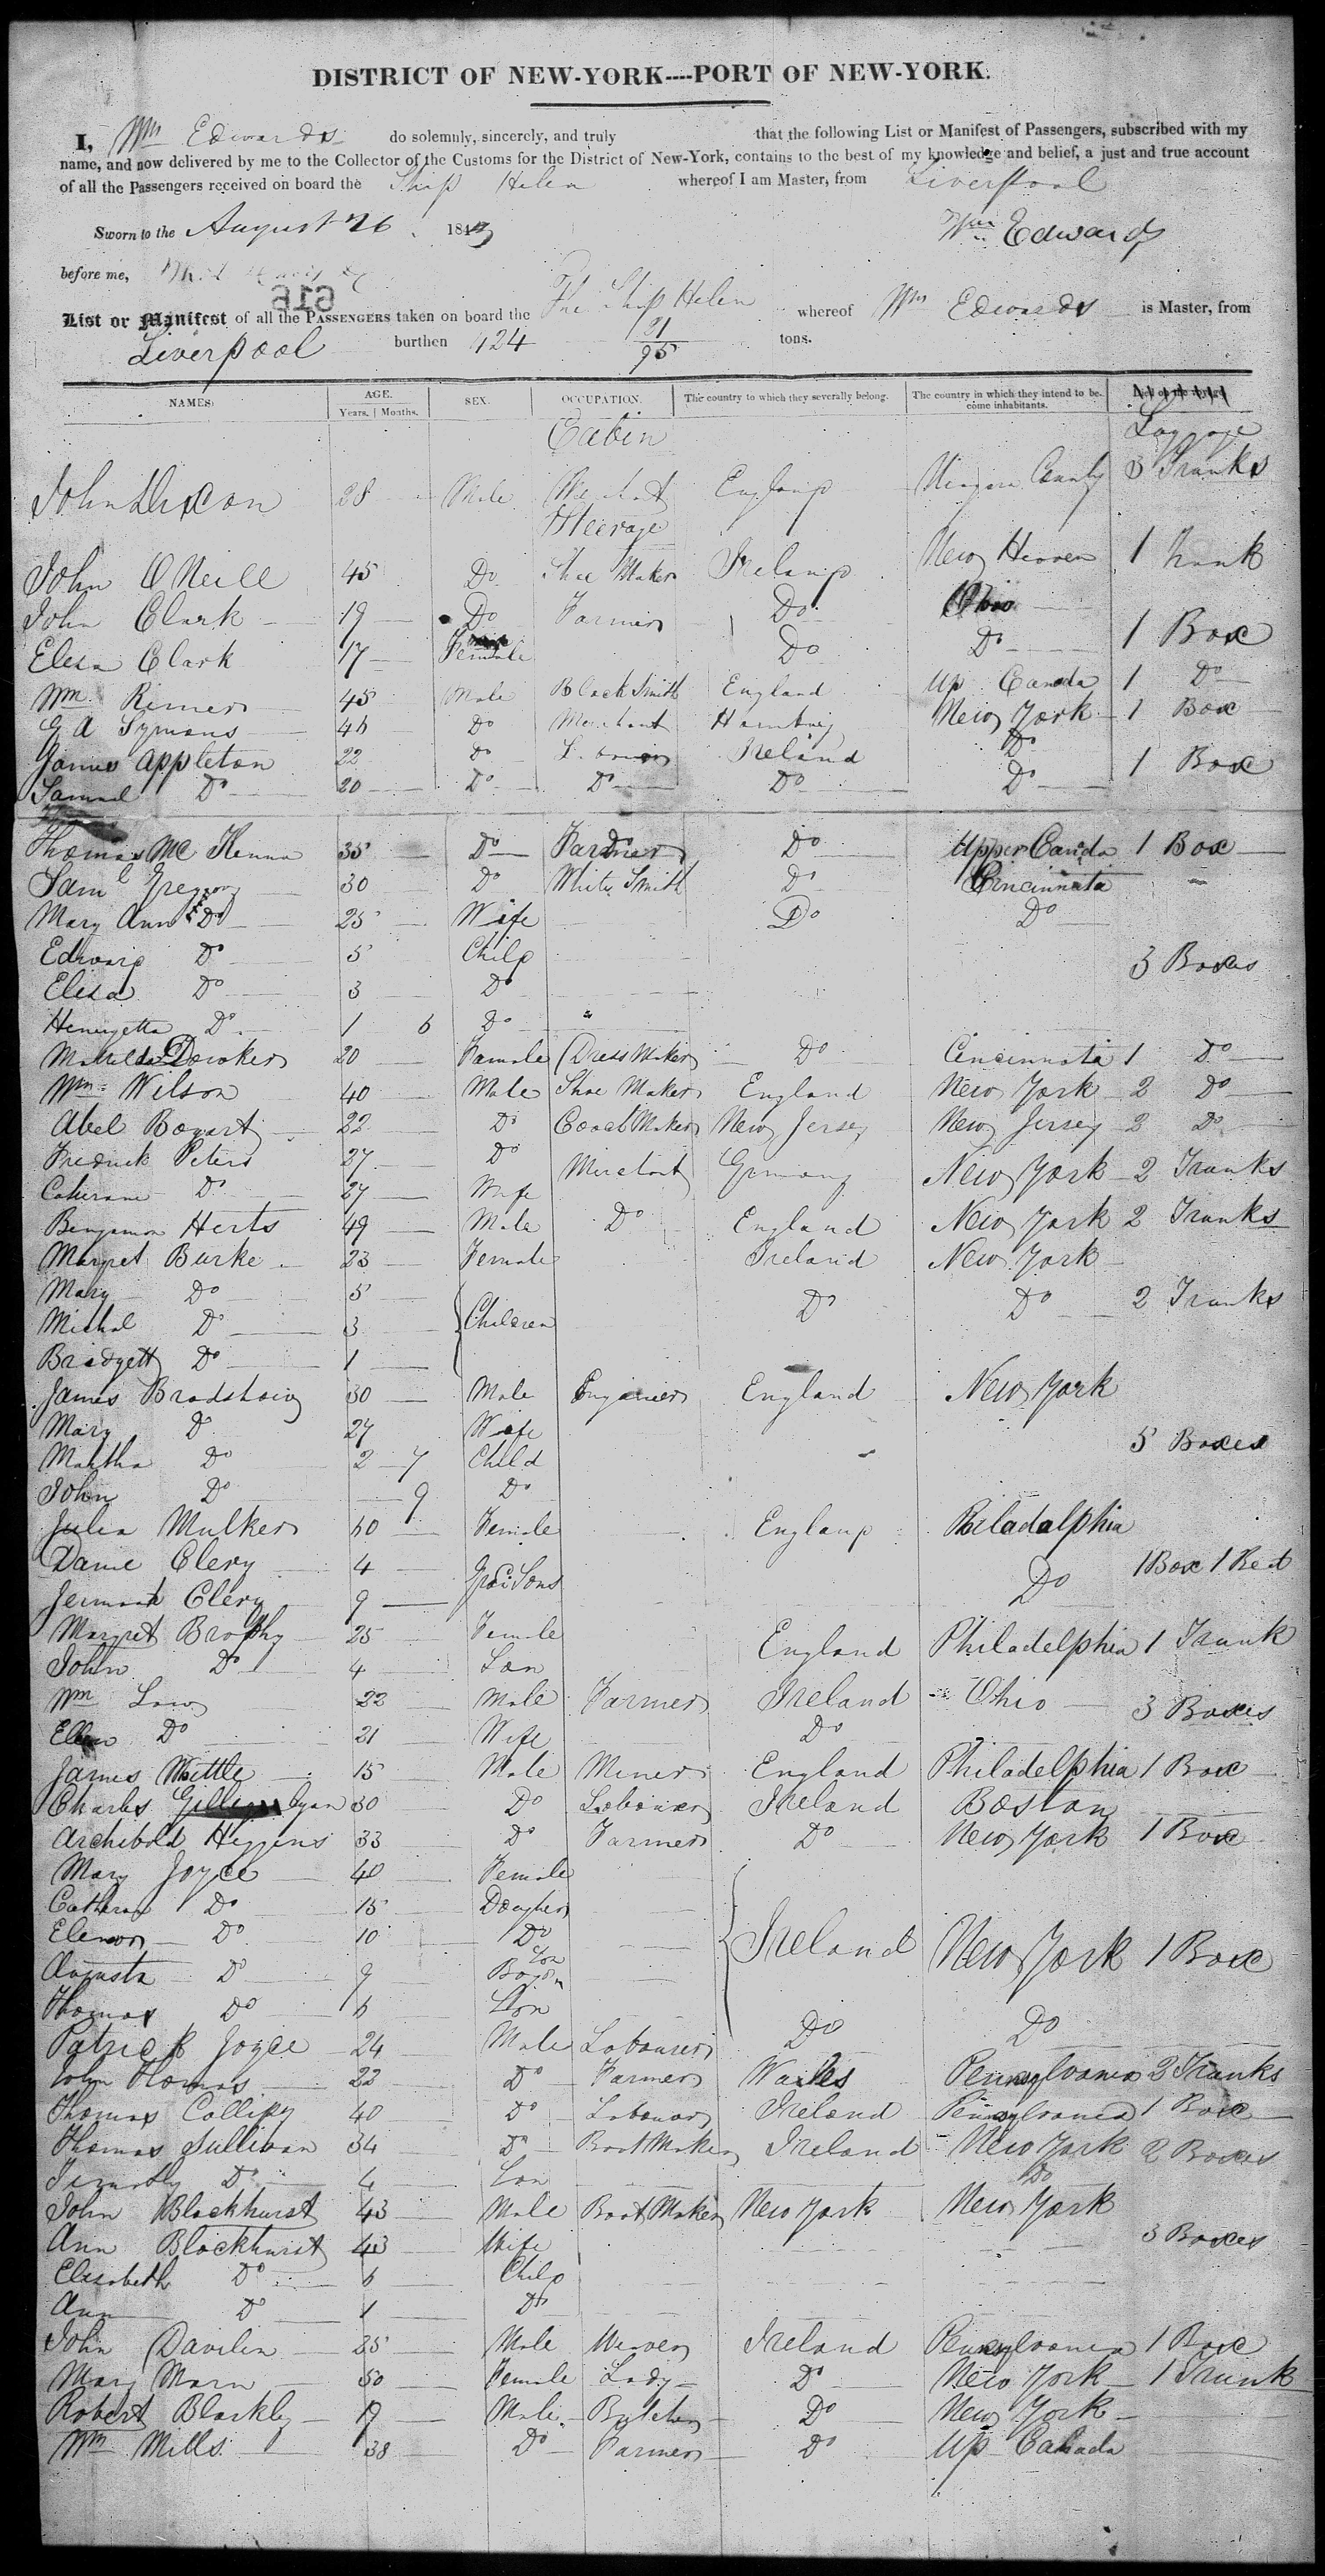 DISTRICT OF NEW-YORK----PORT OF NEW-YORK.
I, Wm Edwards do solemnly, sincerely, and truly that the following List or Manifest of Passengers, subscribed with my
name, and now delivered by me to the Collector of the Customs for the District of New-York, contains to the best of my knowledge and belief, a just and true account
of all the Passengers received on board the Ship Helen whereof I am Master, from Liverpool
Sworn to the August 26 184 Wm Edwards
before me,
List or Manifest of all the PASSENGERS taken on board the The Ship Helen whereof Wm Edwards is Master, from
Liverpool burthen 424 21/95 tons.
NAMES. AGE. Years. | Months. SEX. OCCUPATION. The country to which they severally belong. The country in which they intend to become inhabitants.
Cabin Luggage
John Dixcon 28 Male Merchant England County 3 Trunks
Steerage
John O Neill 45 Do Shoe Maker Ireland New Heaven 1 Trunk
John Clark 19 Do Farmer Do Ohio
Elesa Clark 17 Female Do Do 1 Box
Wm Rimer 45 Male Black Smith England Up Canada 1 Do
G A Symons 46 Do Merchant Hamburg New York 1 Box
James Appleton 22 Do Labourer Ireland Do
Samuel Do 20 Do Do Do Do 1 Box
Thomas Mc Kenna 35 Do Farmer Do Upper Canada 1 Box
Saml Gregory 30 Do White Smith Do Cincinnata
Mary Ann Do 25 Wife Do Do
Edward Do 5 Child 3 Boxes
Elisa Do 3 Do
Heneryetta Do 1 6 Do
Matilda Dowker 20 Famale Dress Maker Do Cincinnata 1 Do
Wm Wilson 40 Male Shoe Maker England New York 2 Do
Abel Bogart 22 Do Coach Maker New Jersey New Jersey 2 Do
Fredrick Peters 27 Do Merchant Germany New York 2 Trunks
Catherane Do 27 Wife
Benjamon Herts 49 Male Do England New York 2 Trunks
Margret Burke 23 Female Ireland New York
Mary Do 5 Do Do 2 Trunks
Michal Do 3 Children
Bridgett Do 1
James Bradshaw 30 Male Enginier England New York
Mary Do 27 Wife 5 Boxes
Martha Do 2 7 Child
John Do 9 Do
Julia Mulker 60 Female England Philadalphia
Danie Clery 4 Do 1 Box 1 Bed
Jermiah Clery 9 Gra Sons
Margret Brophy 25 Female England Philadelphia 1 Trunk
John Do 4 Son
Wm Law 22 Male Farmer Ireland Ohio 3 Boxes
Ellen Do 21 Wife Do
James Whittle 15 Male Miner England Philadelphia 1 Box
Charles 30 Do Labourer Ireland Boston
Archibold Higgins 33 Do Farmer Do New York 1 Box
Mary Joyce 40 Female
Catheran Do 15 Daughter
Elenor Do 10 Do Ireland New York 1 Box
Augusta Do 9 Son
Thomas Do 6 Son
Patrick Joyce 24 Male Labourer Do Do
John Thomas 22 Do Farmer Wales Pennsylvania 3 Trunks
Thomas Collipy 40 Do Labourer Ireland Pennsylvania 1 Box
Thomas Sullivan 34 Do Boot Maker Ireland New York 2 Boxes
Timothy Do 4 Son Do
John Blackhurst 43 Male Boot Maker New York New York
Ann Blackhurst 43 Wife 3 Boxes
Elisabeth Do 6 Child
Ann Do 1 Do
John Davilin 25 Male Weaver Ireland Pennsylvania 1 Box
Mary Marn 50 Female Lady Do New York 1 Trunk
Robert Blarkley 19 Male Butcher Do New York
Wm Mills 38 Do Farmer Do Up Canada